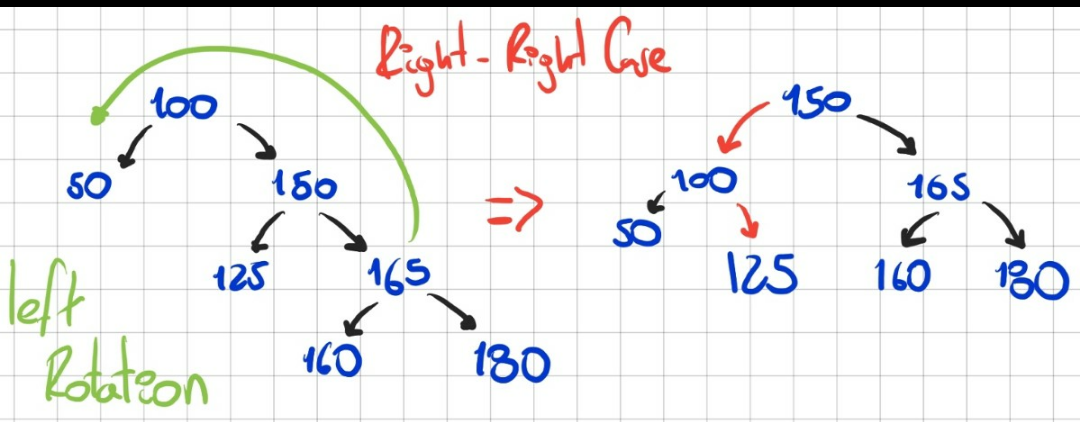 Right-Right Case
100
50
150
125
165
160
180
left
Rotation
=>
150
100
165
50
125
160
180